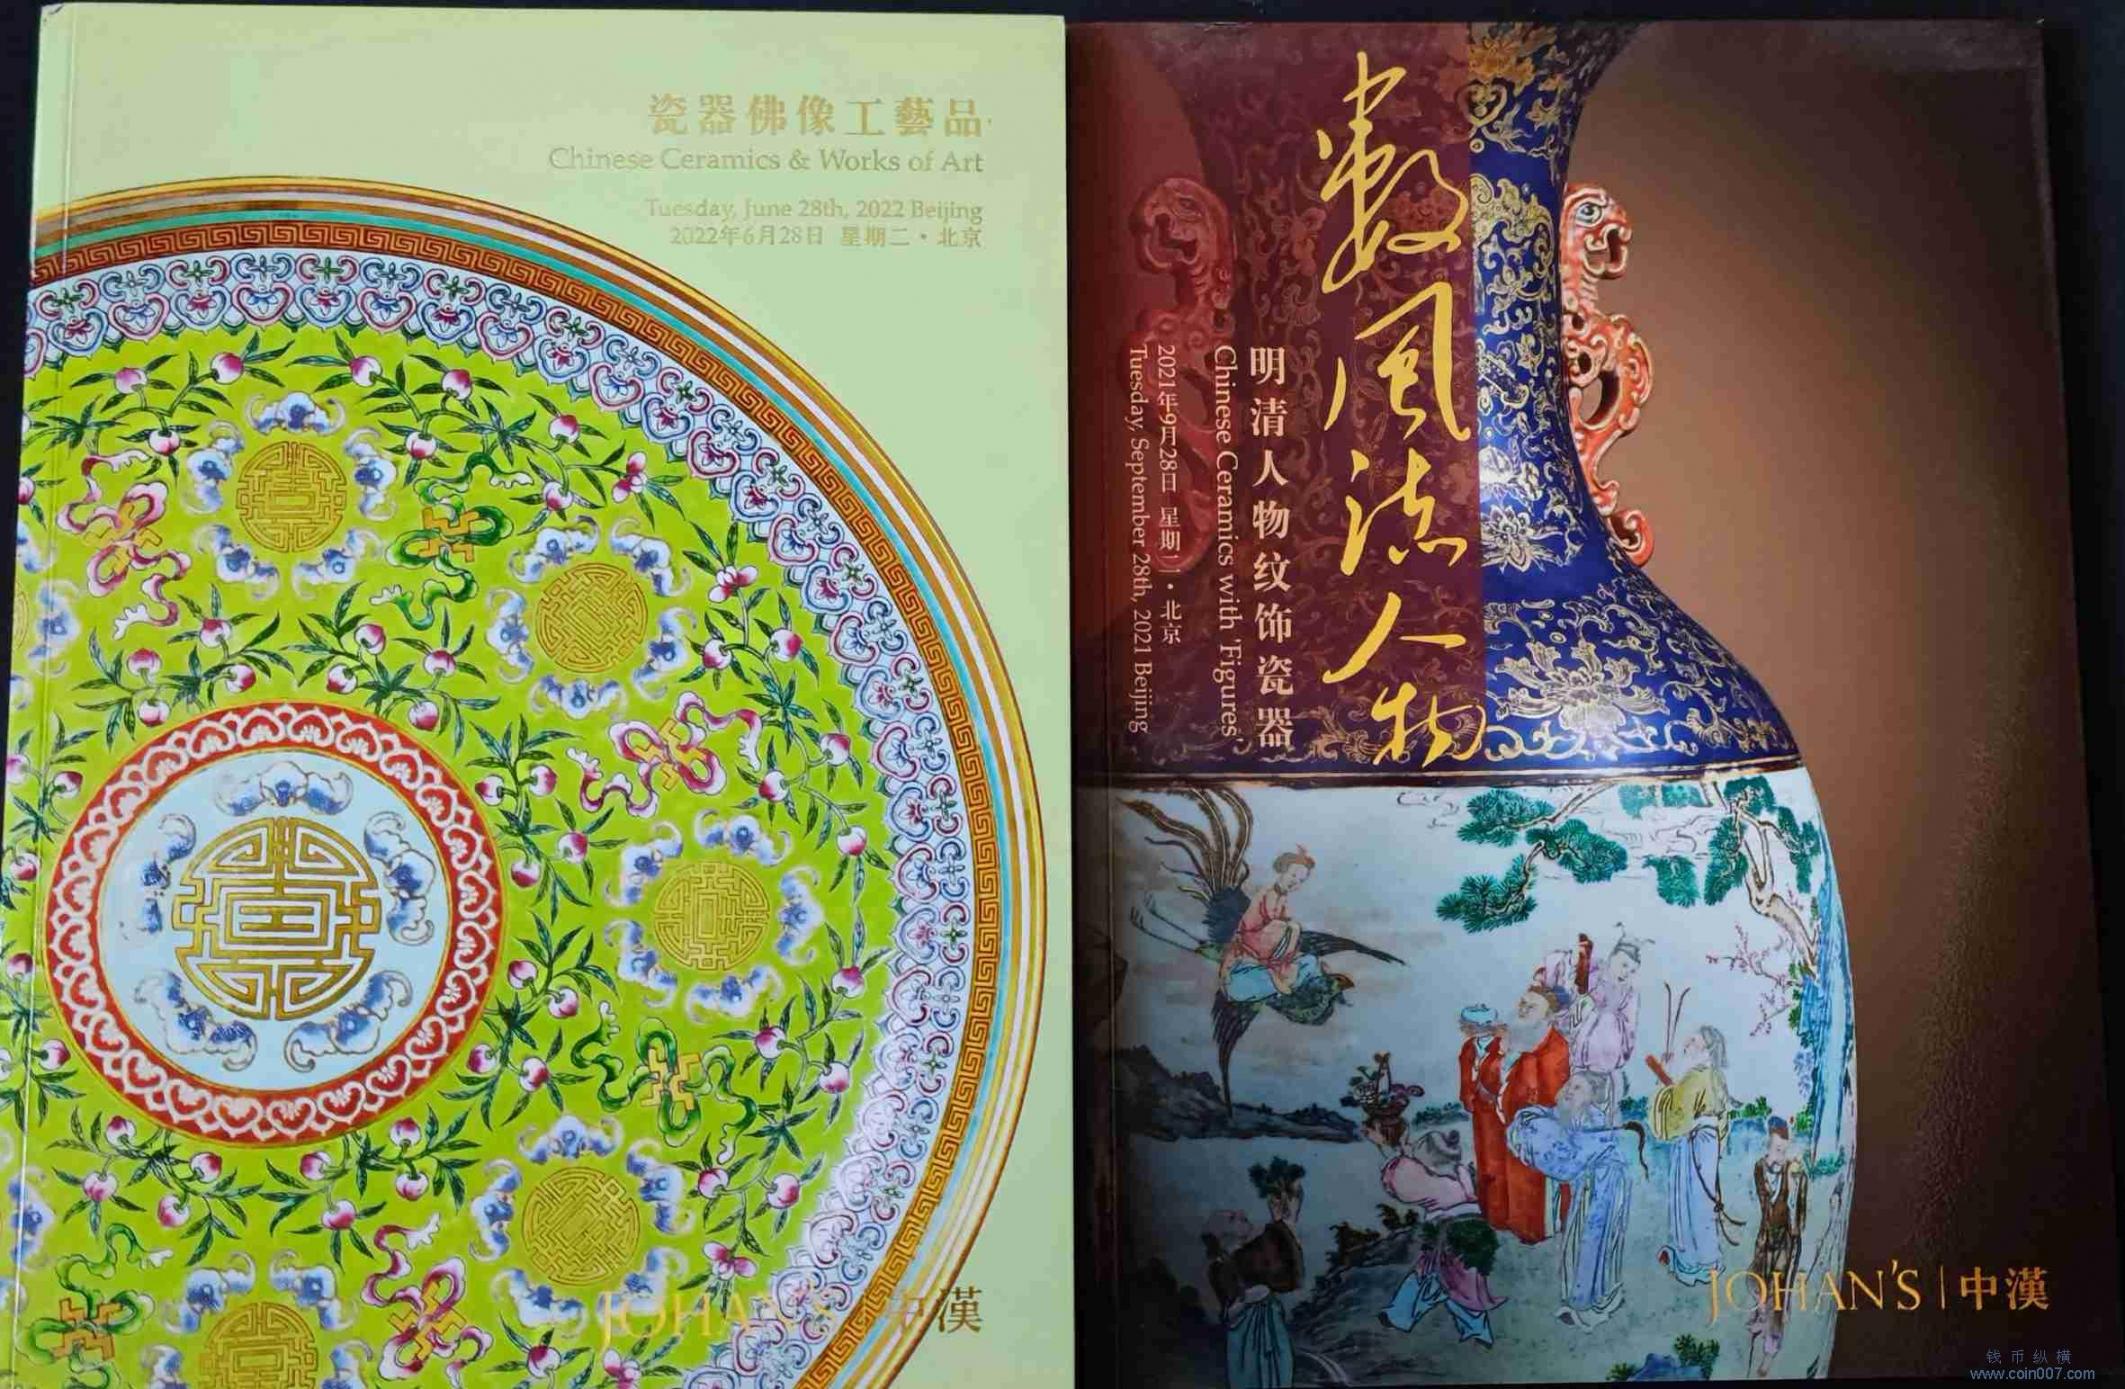 瓷器佛像工藝品
Chinese Ceramics & Works of Art
Tuesday, June 28th, 2022 Beijing
2022年6月28日 星期二·北京
JOHAN'S 中漢
數風流人物
明清人物纹饰瓷器
Chinese Ceramics with 'Figures'
2021年9月28日 星期二·北京
Tuesday, September 28th, 2021 Beijing
JOHAN'S | 中漢
钱币纵横
www.coin007.com